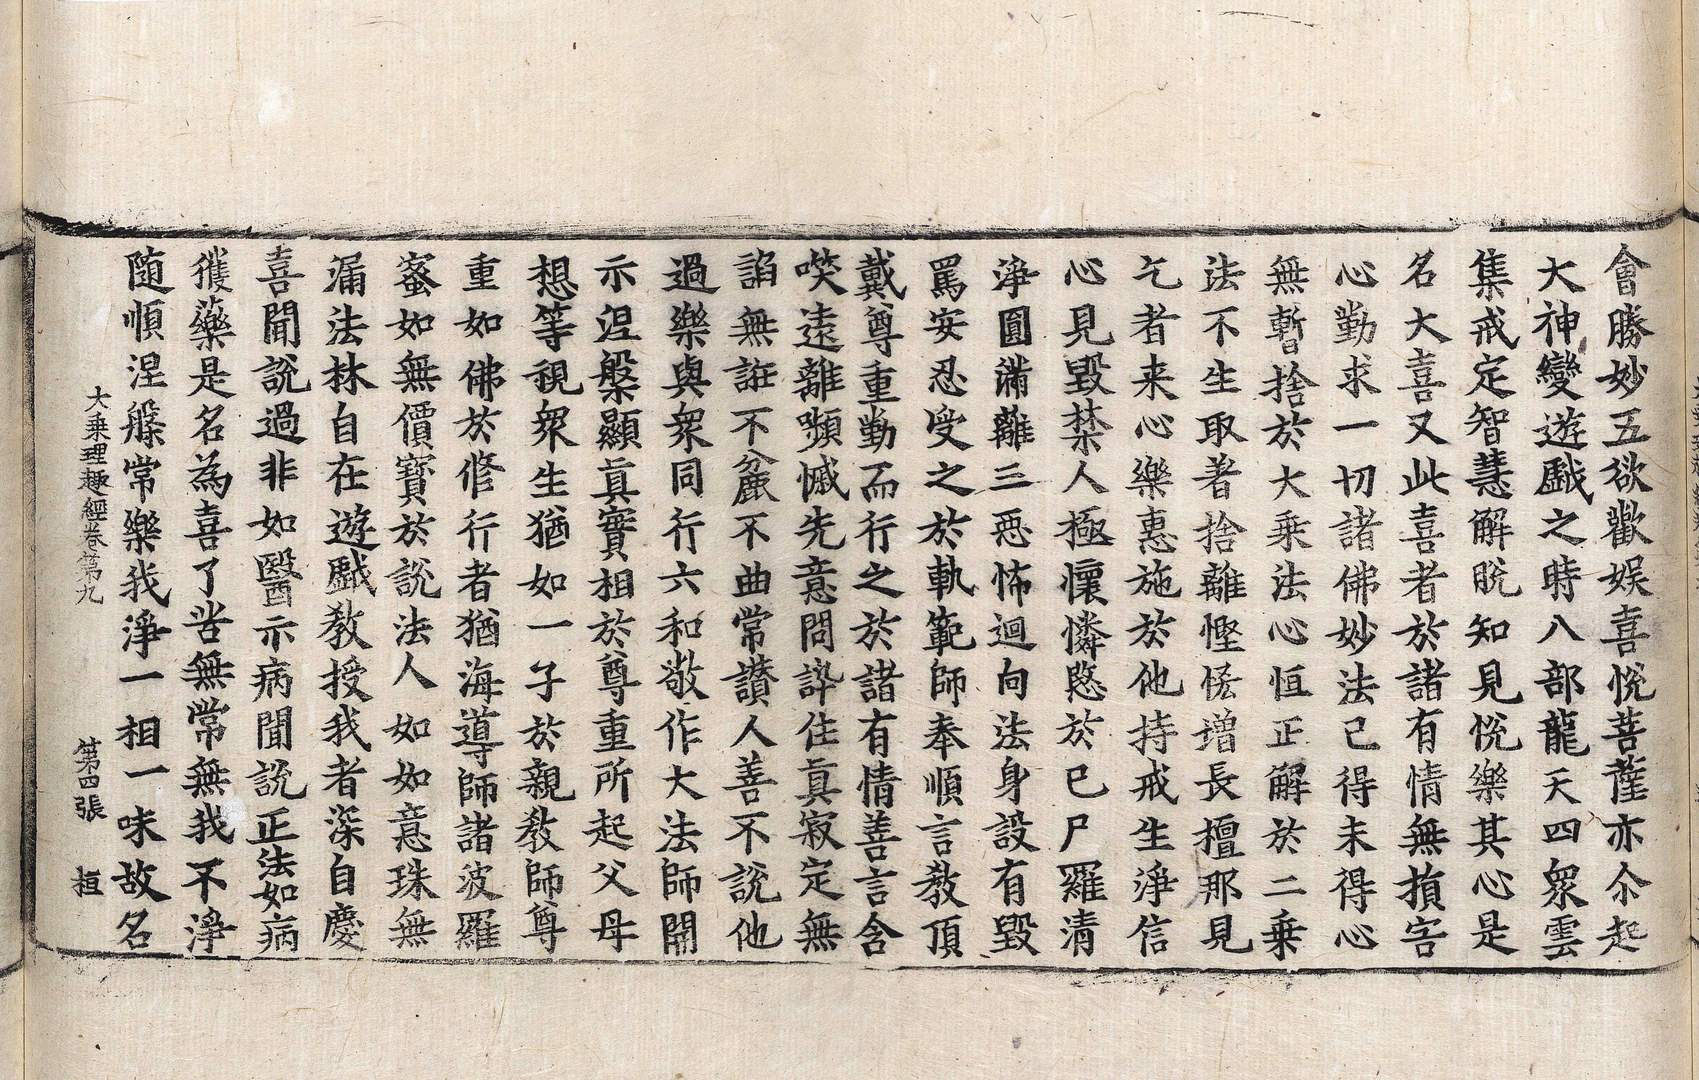 會勝妙五欲歡娛喜悅菩薩亦尒起
大神變遊戲之時八部龍天四衆雲
集戒定智慧解脫知見悅樂其心是
名大喜又此喜者於諸有情無損害
心勤求一切諸佛妙法已得未得心
無暫捨於大乘法心恒正解於二乘
法不生取著捨離慳悋增長檀那見
乞者来心樂惠施於他持戒生淨信
心見毀禁人極懷憐愍於己尸羅清
淨圓滿離三惡怖迴向法身設有毀
罵安忍受之於軌範師奉順言教頂
戴尊重勤而行之於諸有情善言含
唉遠離嚬慽先意問訊住真寂定無
諂無誑不麁不曲常讃人善不說他
過樂與衆同行六和敬作大法師開
示涅槃顯真實相於尊重所起父母
想等視衆生猶如一子於親教師尊
重如佛於修行者猶海導師諸波羅
蜜如無價寶於說法人如如意珠無
漏法林自在遊戲教授我者深自慶
喜聞說過非如醫示病聞說正法如病
獲藥是名為喜了苦無常無我不淨
随順涅槃常樂我淨一相一味故名
大乘理趣經卷第九 第四張 桓